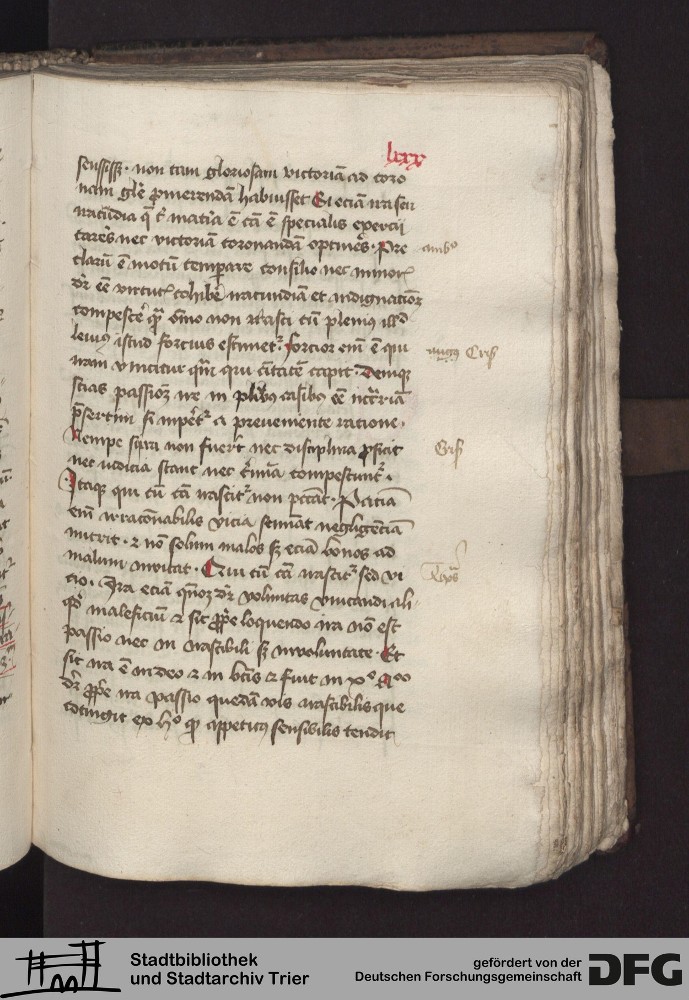 lxxx
sensisset non tam gloriosam victoriam ad coro
nam glē promerendā habuisset Ei eciam irasci
iracūdia q̄ ē matia ē cā ē specialis exercii
tares nec victoriā coronandam optines. Pre
ambo
clarū ē motū temperare consilio nec minor
dr̄ eē virtut cohibē iracundiā et indignacioē
compescē qr̄ oīno non irasci cū plenius illd
leuius istud forcius estimet. forcior enī ē qui
Cris
iram vincitur qm̄ qui ciuitatē capit. Denique
scias passioē ire in plibus casibus eē nccāriā
p̄sertim si inpet a preueniente racione.
Nempe si ira non fuerit nec disciplina proficit
Cris
nec iudicia stant nec cīmina compescunt.
Itaque qui cū cā irascit non peccat. Paciā
enī irracōnabilis vicia seminat negligenciā
nutrit. et nō solum malos sz eciā bonos ad
malum inuitat. Qui cū cā irascit sed vi
cio. Ira eciā qn̄oz dr̄ voluntas vincandi ali
qd̄ maleficiū et sic proprie loquendo ira nō est
passio nec in irascibili sz in voluntate. Et
sic ira ē in deo et in btīs et fuit in xo. Alio
dr̄ proprie ira passio quedam vis irascibilis que
cōtingit ex ho qd appetitus sensibilis tendit
Stadtbibliothek
und Stadtarchiv Trier
gefördert von der
Deutschen Forschungsgemeinschaft
DFG